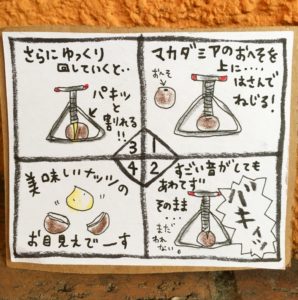 マカダミアのおへそを
上に‥‥
はさんで
ねじる!
おへそ
1
すごい音がしても
あわてず!
そのまま
‥‥
まだ
われない。
バキィッ
2
さらにゆっくり
回していくと‥
パキッ
と
割れる
!!
3
美味しいナッツの
お目見えでーす
4